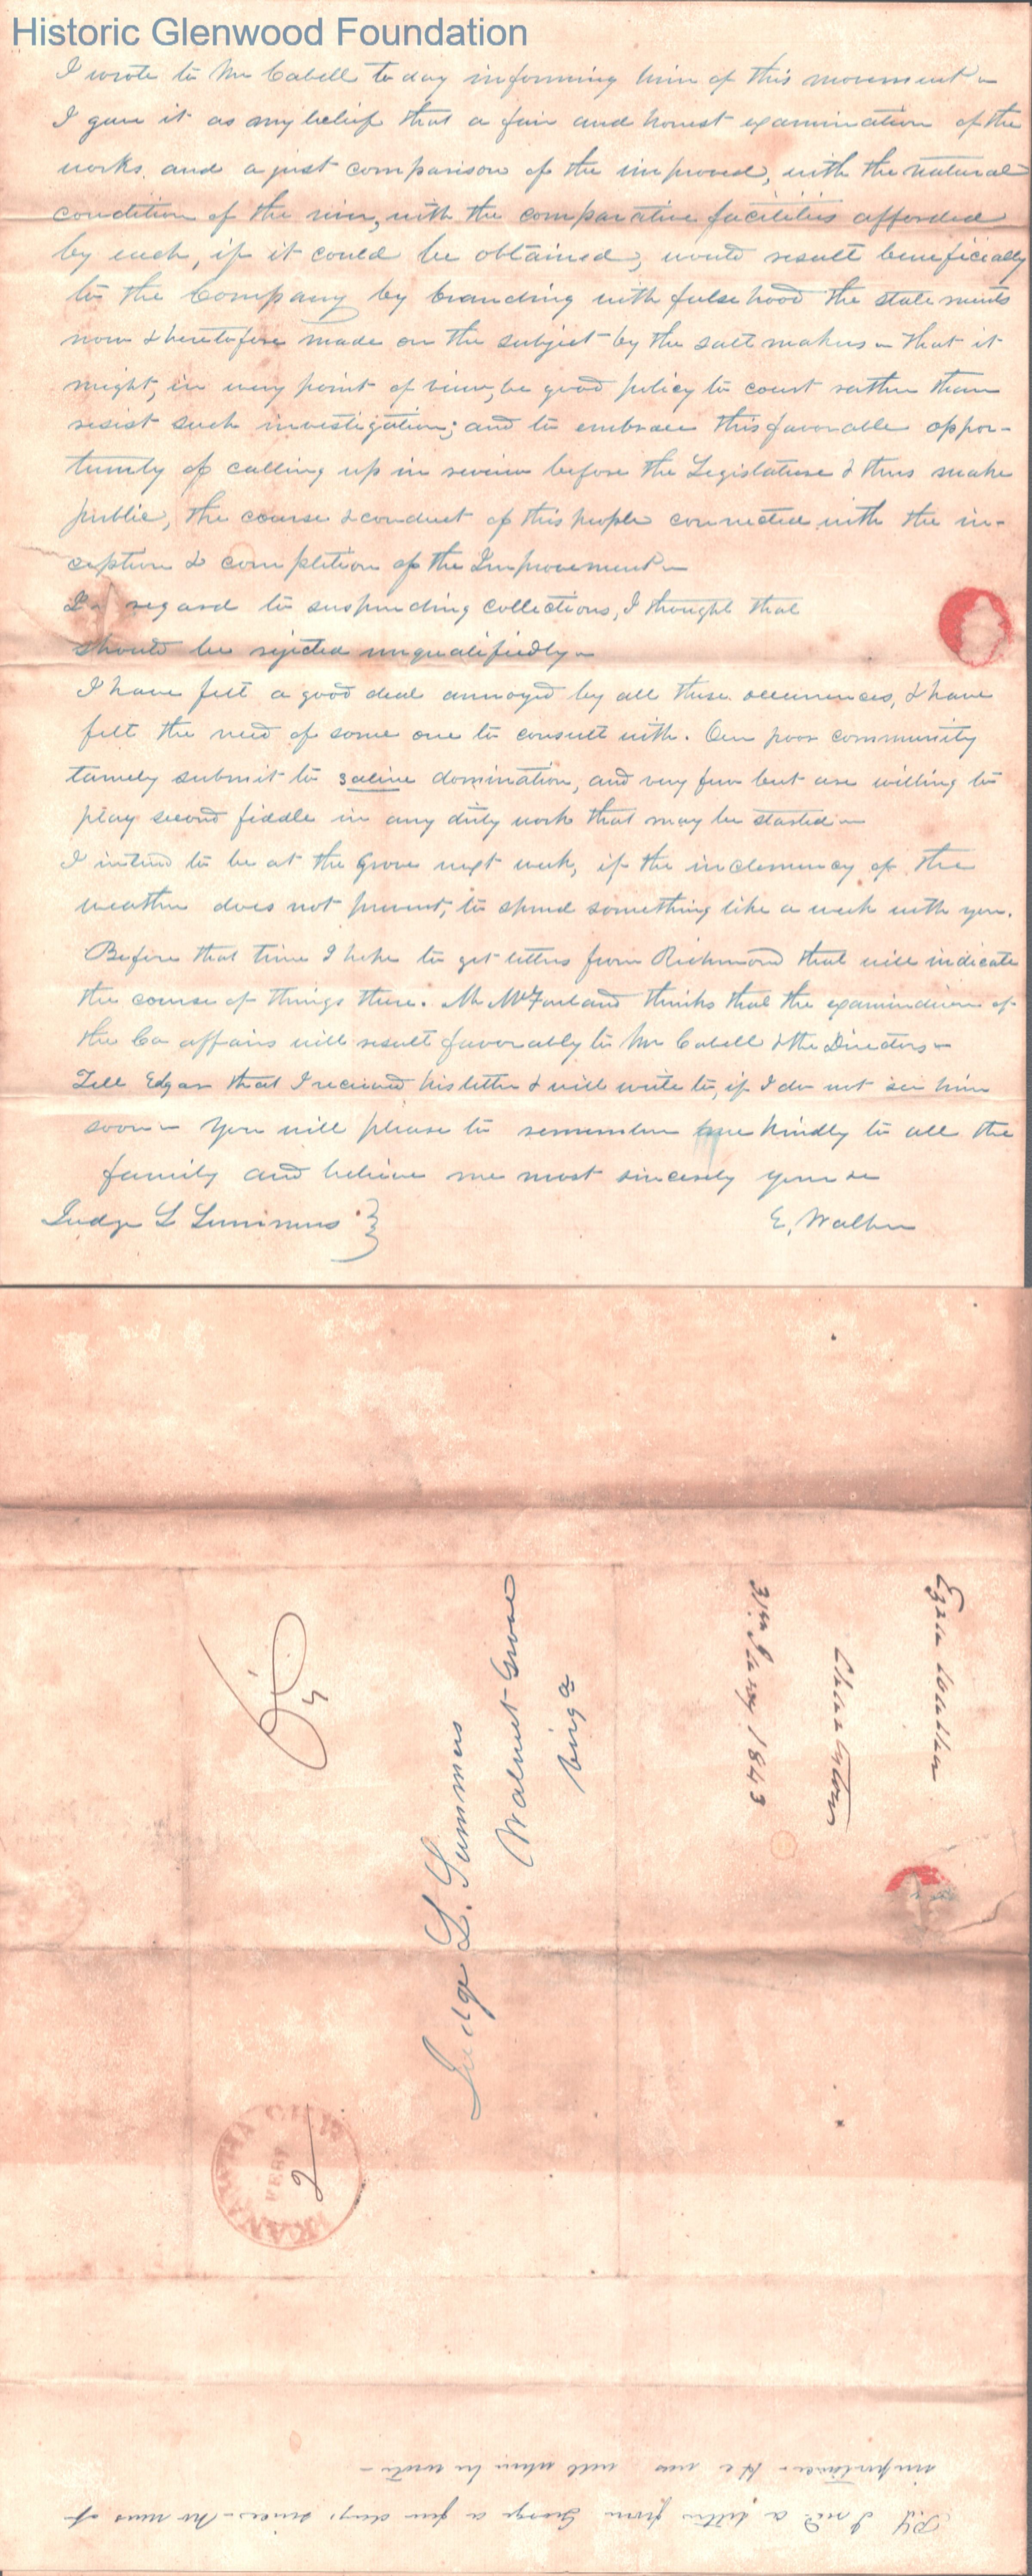 Historic Glenwood Foundation
I wrote to Mr Cabell to day informing him of this movement –
I gave it as my belief that a fair and honest examination of the
works, and a just comparison of the improved, with the natural
condition of the river, with the comparative facilities afforded
by each, if it could be obtained, would result beneficially
to the Company by branding with falsehood the statements
now & heretofore made on the subject by the salt makers – that it
might, in every point of view, be good policy to court rather than
resist such investigation; and to embrace this favorable oppor-
tunity of calling up in review before the Legislature & thus make
public, the course & conduct of this people connected with the in-
ception & completion of the Improvement –
In regard to suspending collections, I thought that
should be rejected unqualifiedly –
I have felt a good deal annoyed by all these occurrences, & have
felt the need of some one to consult with. Our poor community
tamely submit to saline domination, and very few but are willing to
play second fiddle in any dirty work that may be started –
I intend to be at the Grove next week, if the inclemency of the
weather does not prevent, to spend something like a week with you.
Before that time I hope to get letters from Richmond that will indicate
the course of things there. Mr McFarland thinks that the examination of
the Co affairs will result favorably to Mr Cabell & the Directors –
Tell Edgar that I received his letter & will write to, if I do not see him
soon – You will please to remember me kindly to all the
family and believe me most sincerely yours
Judge L Summers
E. Walker
Ezra Walker
Charleston
31st Jany 1843
Judge L. Summers
Walnut Grove
Virga
6
KANAWHA C.H.
FEB
2
P.S. I recd a letter from George a few days since – No news of
importance – He was well when he wrote –